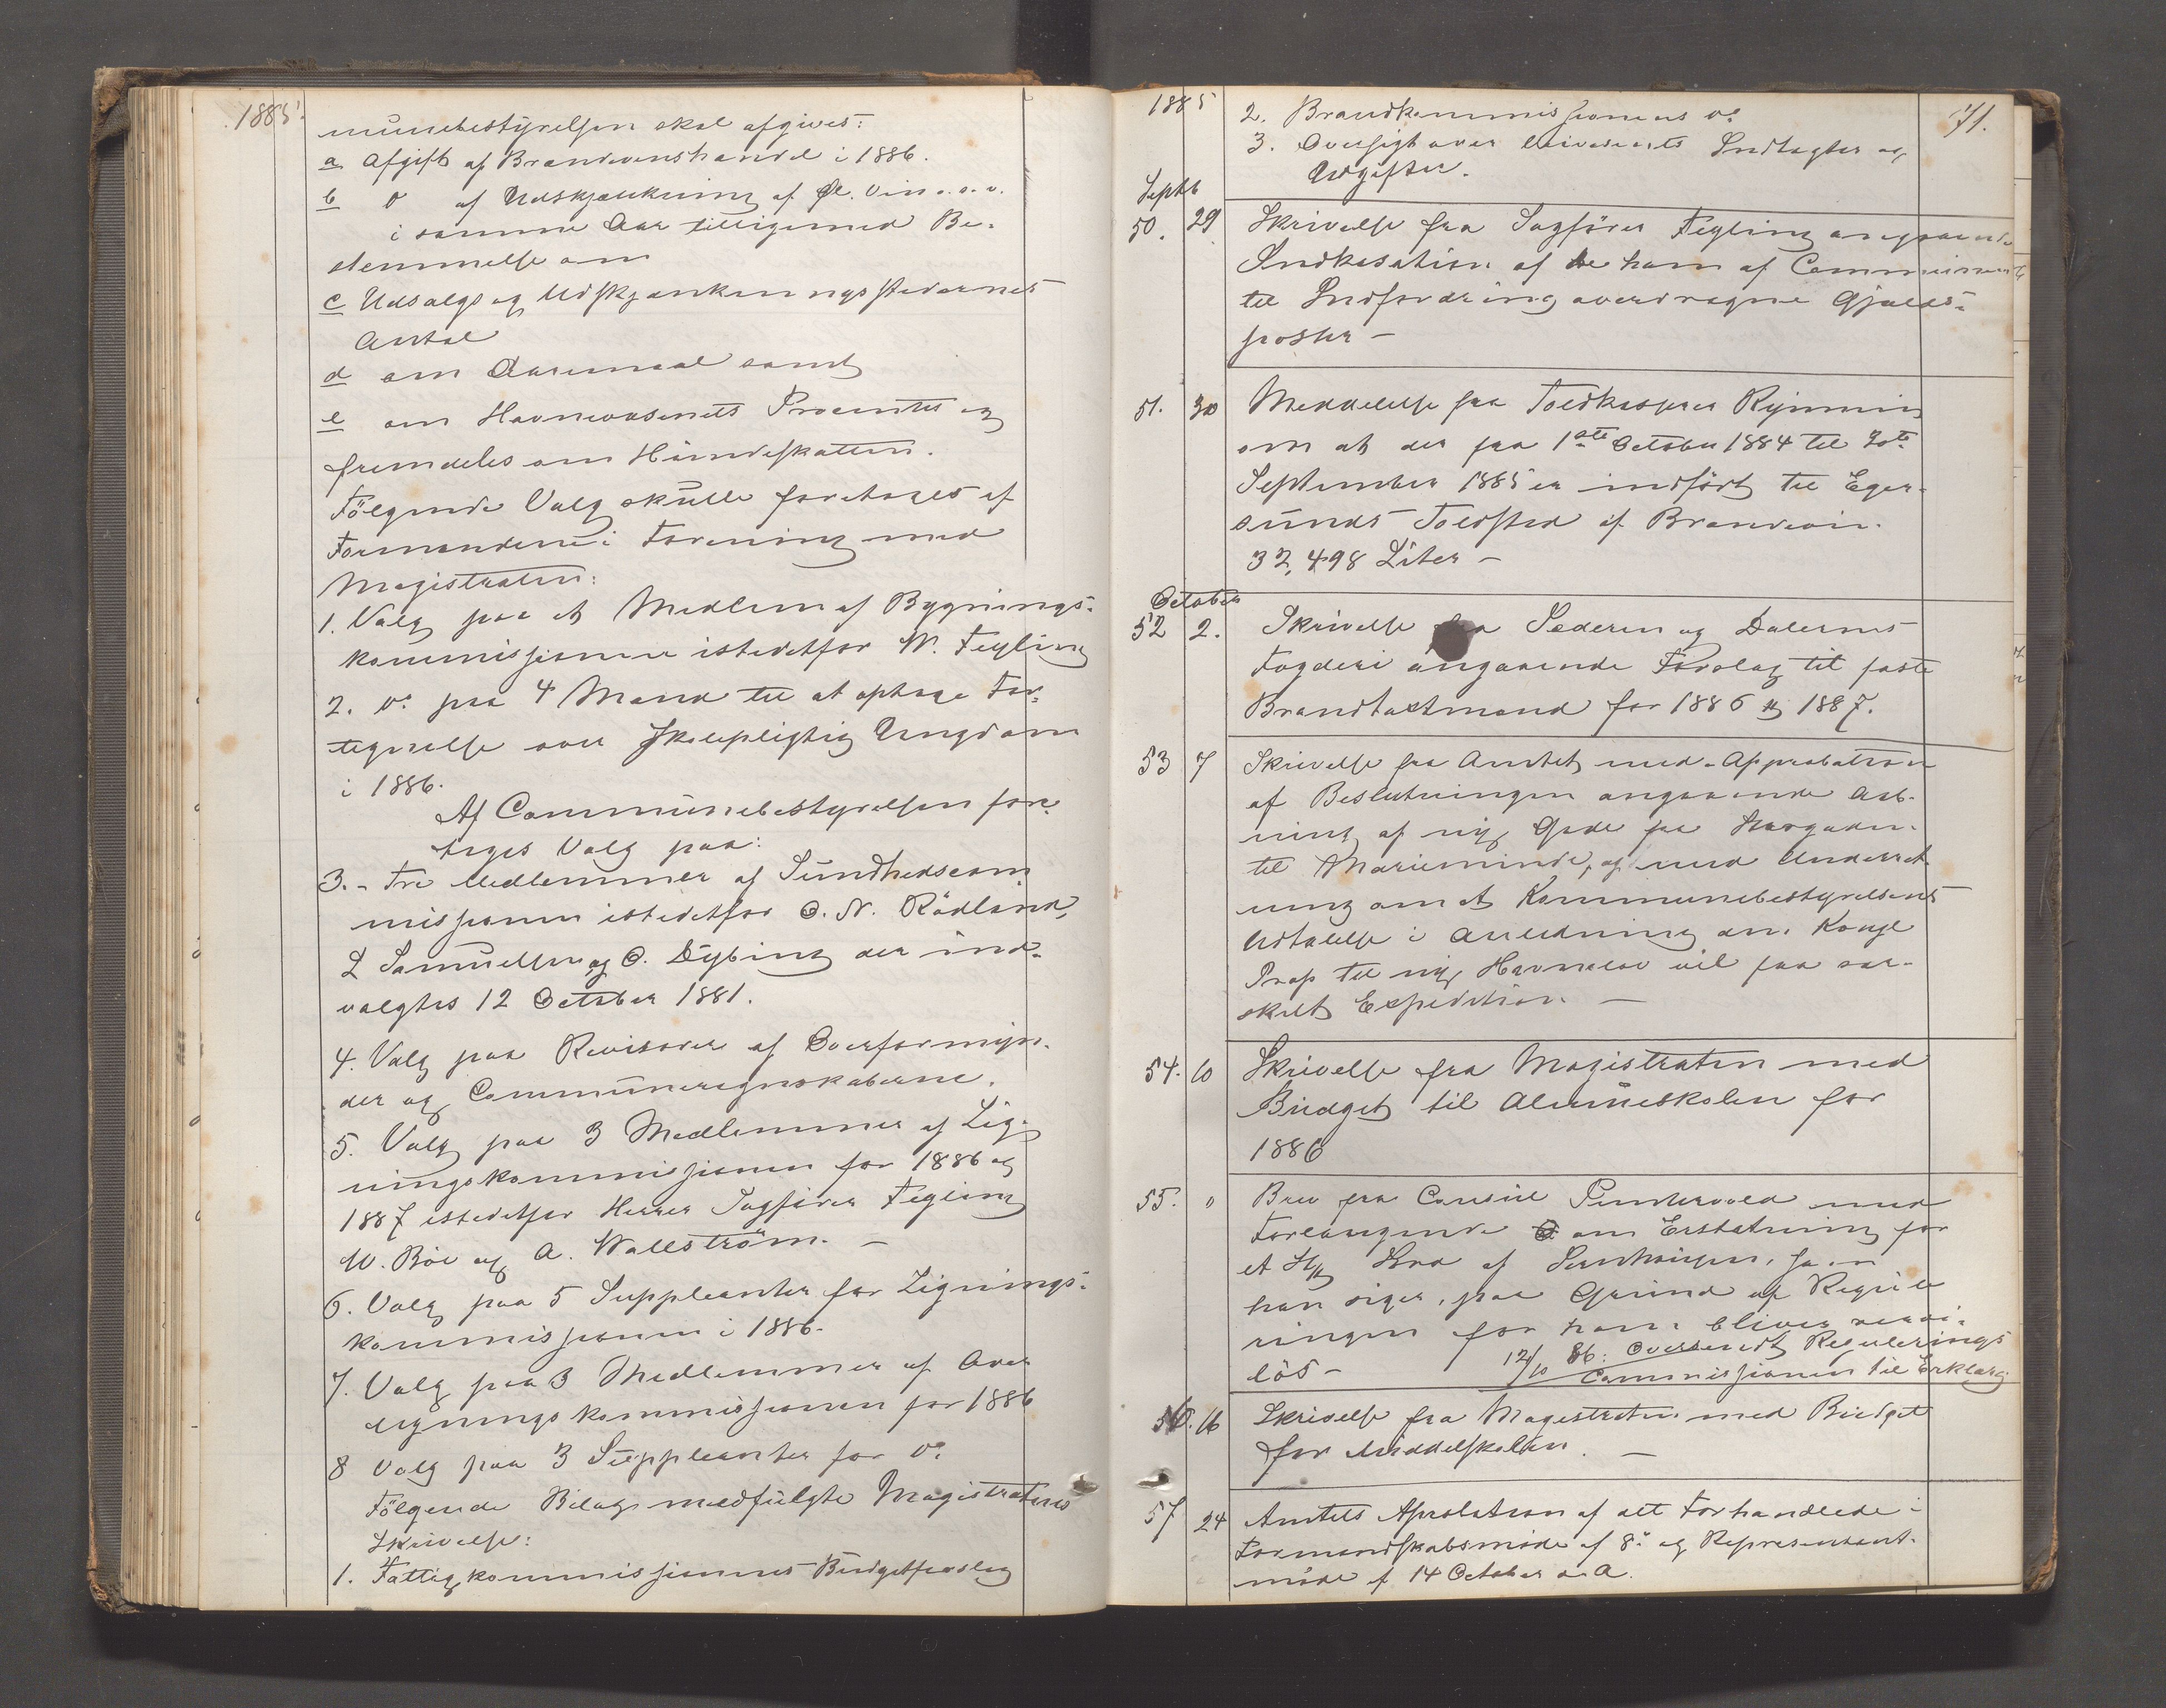 1885
munebestyrelsen skal afgives:
a Afgift af Brændevinshandel i 1886.
b do af Udskjænkning af Øl. Vin o.s.v.
i samme Aar tilligemed Be-
stemmelse om
c Udsalgs og Udskjænkningsstedernes
Antal
d om Aaremaal samt
e om Havnevæsenets Procenter og
fremdeles om Hundeskatten.
Følgende Valg skulle foretages af
Formændene i Forening med
Magistraten:
1. Valg paa et Medlem af Bygnings-
kommissionen istedetfor W. Feyling
2. do paa 4 Mænd til at optage For-
tegnelse over Skolepligtig Ungdom
i 1886.
Af Communebestyrelsen fore-
tages Valg paa:
3. - Tre Medlemmer af Sundhedscom
missionen istedetfor O. N. Rödland,
L Samuelsen og O. Dybing der ind-
valgtes 12 October 1881.
4. Valg paa Revisorer af Overformyn-
der og Communeregnskaberne.
5. Valg paa 3 Medlemmer af Lig-
ningskommissionen for 1886 og
1887 istedetfor Herrer Sagfører Feyling
W. Böe og A. Wallström. -
6. Valg paa 5 Suppleanter for Lignings-
kommissionen i 1886.
7. Valg paa 3 Medlemmer af Over
ligningskommissionen for 1886
8 Valg paa 3 Suppleanter for do
Følgende Bilage medfulgte Magistratens
Skrivelse:
1. Fattigkommissionens Budgetforslag
1885
71.
2. Brandkommissionens do
3. Oversigt over Indtægter og
Udgifter.
Septb
50. 29 Skrivelse fra Sagförer Feyling angaaende
Indkasation af de ham af Communen
til Indfordring overdragne Gjælds-
poster -
51. 30 Meddelelse fra Toldkasserer Rynning
om at der fra 1ste October 1884 til 30te
September 1885 er indført til Eger-
sunds Toldsted af Brændevin.
32,498 Liter -
October
52 2. Skrivelse fra Jæderen og Dalernes
Fogderi angaaende Forslag til faste
Brandtaxtmænd for 1886 og 1887.
53 7 Skrivelse fra Amtet med Approbation
af Beslutningen angaaende Aab-
ning af ny Gade fra
til Marieminde, og med Underret
ning om at Kommunebestyrelsens
Udtalelse i Anledning om Kongl
Prop til ny Havnelov vil faa sær-
skilt Expedition. -
54. 10 Skrivelse fra Magistraten med
Budget til Almueskolen for
1886
55. " Brev fra Consul Puntervold med
Forlangende om Erstatning for
et af som
han siger, paa Grund af Regule
ringen for ham bliver værdi-
lös -
12/10 86: Oversendt Regulerings
Commissionen til Erklærg.
56. 16 Skrivelse fra Magistraten med Budget
for Middelskolen. -
57 24 Amtets Aprobation af det Forhandlede i
Formandskabsmöde af 8de og Repræsentant-
möde af 14 October d. A.